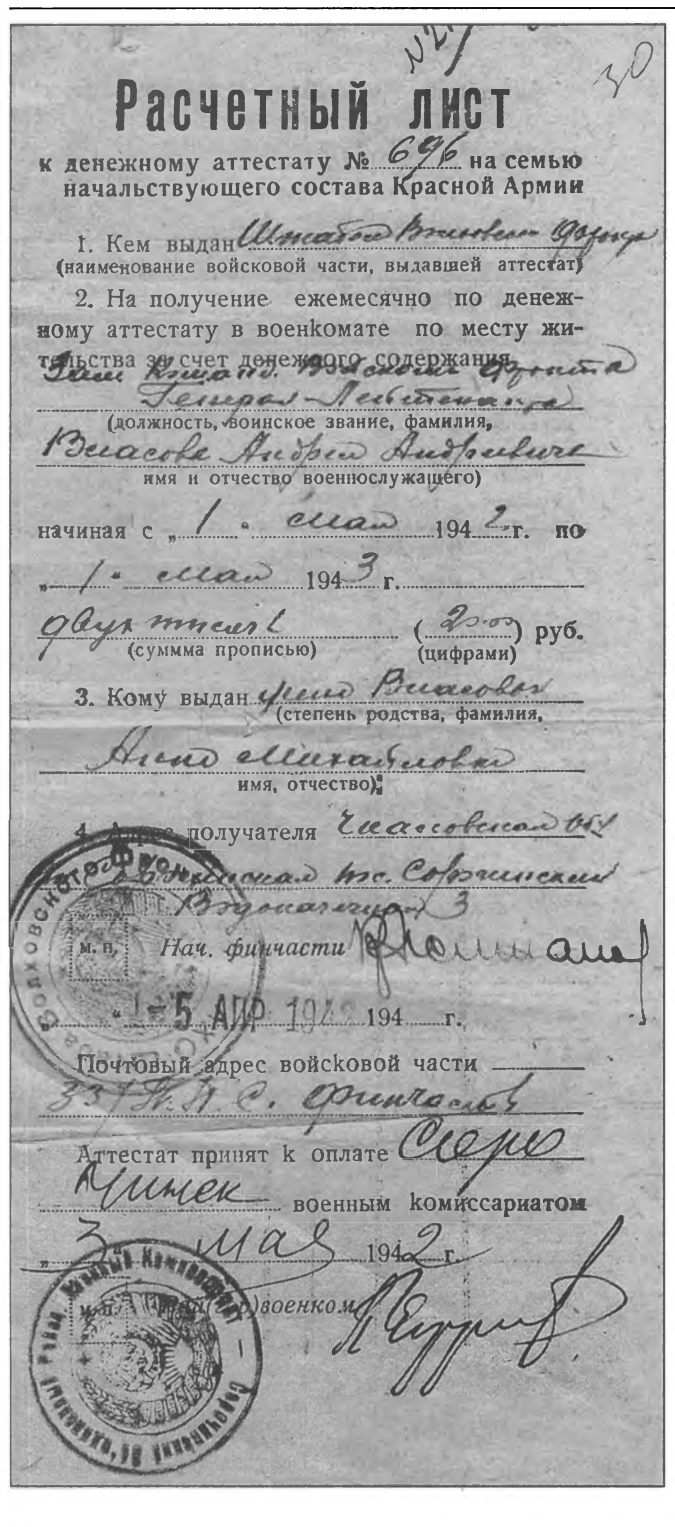 30
Расчетный лист
к денежному аттестату № 696 на семью
начальствующего состава Красной Армии
1. Кем выдан Штабом Волховского фронта
(наименование войсковой части, выдавшей аттестат)
2. На получение ежемесячно по денеж-
ному аттестату в военкомате по месту жи-
тельства за счет денежного содержания
Зам. Команд. Войсками фронта
Генерал-Лейтенанта
(должность, воинское звание, фамилия,
Власова Андрея Андреевича
имя и отчество военнослужащего)
начиная с „ 1 “ мая 1942 г. по
„ 1 “ мая 1943 г.
двух тысяч (2000) руб.
(суммма прописью) (цифрами)
3. Кому выдан жене Власовой
(степень родства, фамилия,
Анне Михайловне
имя, отчество);
4. Адрес получателя Чкаловская обл
Волховского Фронта
3
м. п. Нач. финчасти
5 АПР 1942 194 г.
Почтовый адрес войсковой части
337 П.П.С. финчасть
Аттестат принят к оплате Соро
чинск военным комиссариатом
„ 3 мая 1942 г.
м. п. военком
Районный Военный Комиссариат — Сорочинский